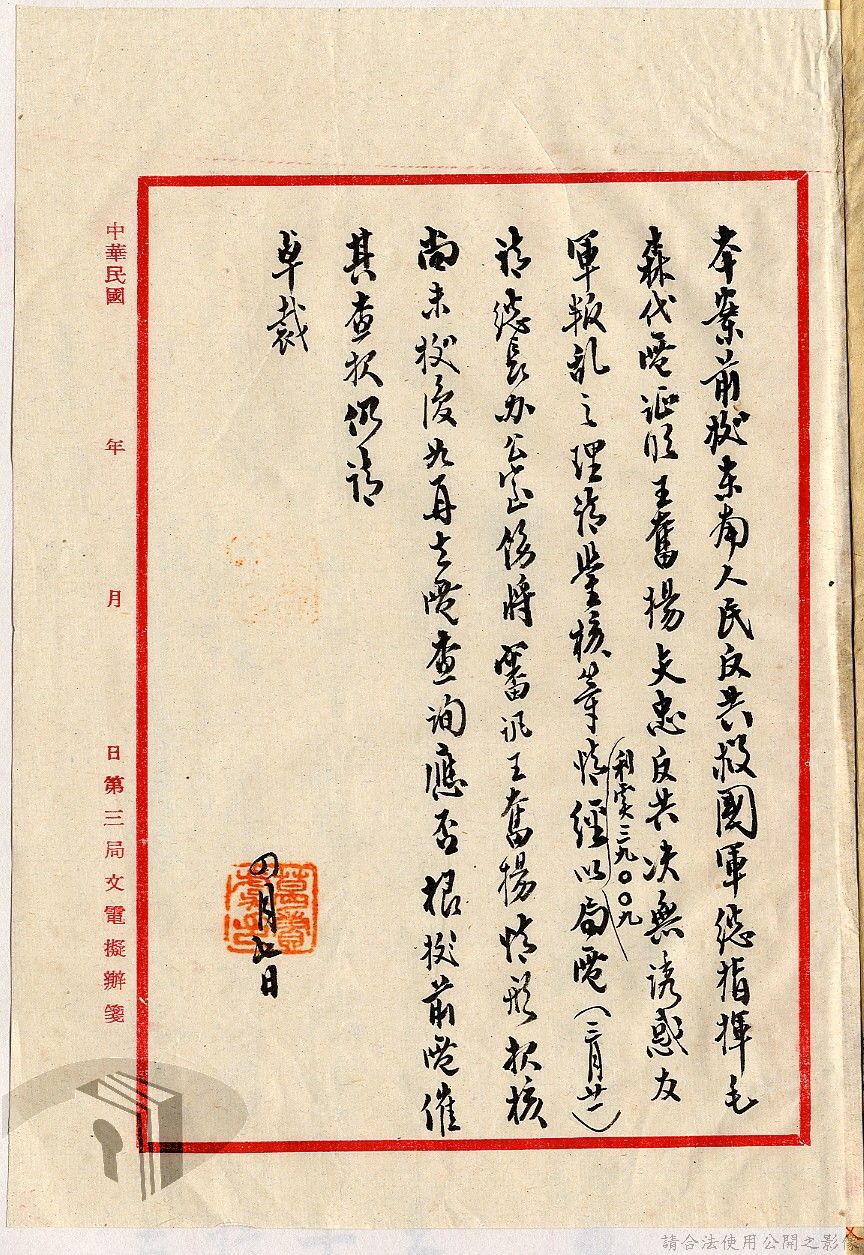 本案前據東南人民反共救國軍總指揮毛
森代電証明王奮揚矢忠反共決無誘惑友
軍叛乱之理請鑒核等情經以局電(三月廿一)
利實三九〇〇九
請總長办公室飭將審訊王奮揚情形報核
尚未據復茲再去電查詢應否根據前電催
其查報仍請
卓裁
四月七日
中華民國 年 月 日第三局文電擬辦箋
請合法使用公開之影像